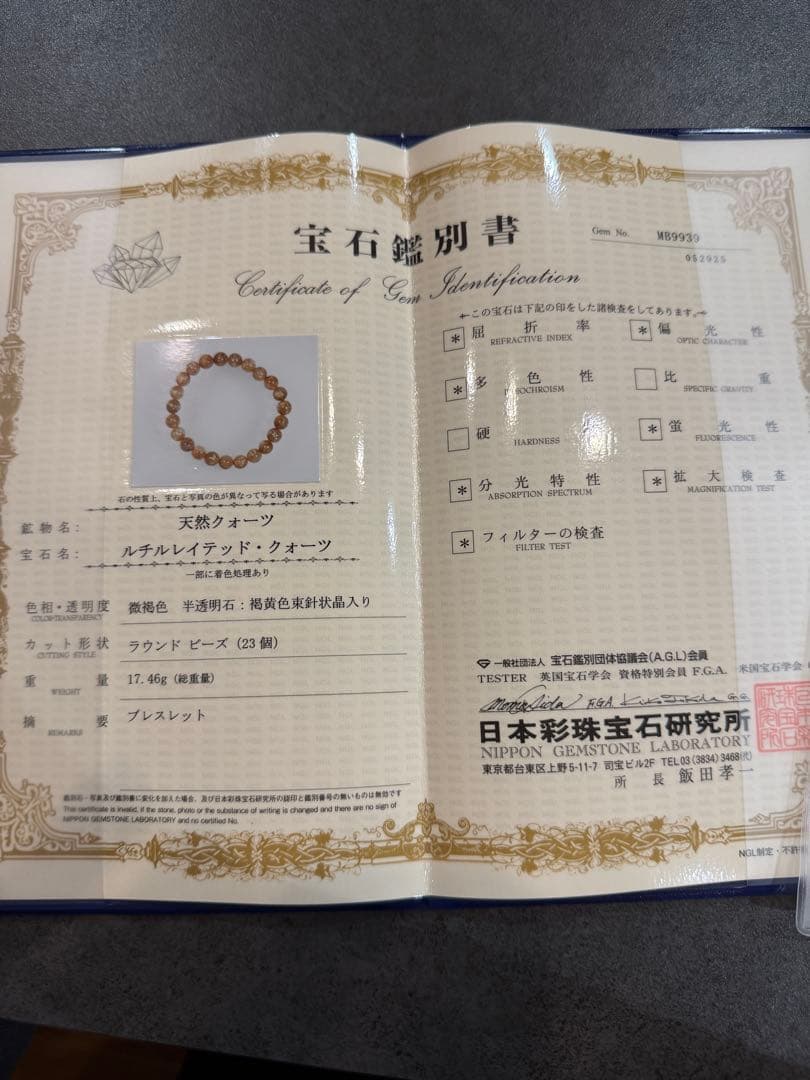 宝石鑑別書
Certificate of Gem Identification
Gem No. MB9939
052925
この宝石は下記の印をした諸検査をしてあります。
* 屈折率 REFRACTIVE INDEX
* 偏光性 OPTIC CHARACTER
* 多色性
比重 SPECIFIC GRAVITY
硬 HARDNESS
* 蛍光性 FLUORESCENCE
* 分光特性 ABSORPTION SPECTRUM
* 拡大検査 MAGNIFICATION TEST
* フィルターの検査 FILTER TEST
石の性質上、宝石と写真の色が異なって写る場合があります
鉱物名: 天然クォーツ
宝石名: ルチルレイテッド・クォーツ
一部に着色処理あり
色相・透明度 微褐色 半透明石:褐黄色束針状晶入り
COLOR・TRANSPARENCY
カット形状 ラウンド ビーズ (23個)
CUTTING STYLE
重量 17.46g (総重量)
WEIGHT
摘要 ブレスレット
REMARKS
鑑別石・写真及び鑑別書に変化を加えた場合、及び日本彩珠宝石研究所の認印と鑑別番号の無いものは無効です
This certificate is invalid, if the stone, photo or the substance of writing is changed and there are no sign of
NIPPON GEMSTONE LABORATORY and no certified No.
一般社団法人 宝石鑑別団体協議会(A.G.L)会員
TESTER 英国宝石学会 資格特別会員 F.G.A. 米国宝石学会
F.G.A. G.G.
日本彩珠宝石研究所
NIPPON GEMSTONE LABORATORY
東京都台東区上野5-11-7 司宝ビル2F TEL03(3834)3468(代)
所長 飯田孝一
NGL制定・不許